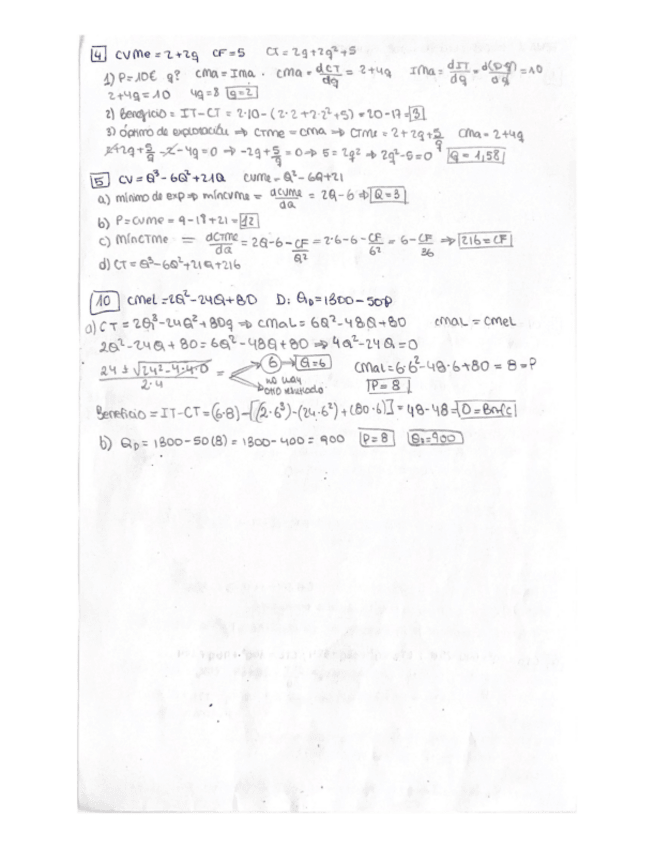 4 CVMe = 2+2q CF = 5 CT = 2q+2q²+5
1) P=10€ q? CMa = IMa. CMa = dCT/dq = 2+4q IMa = dIT/dq = d(10q)/dq = 10
2+4q = 10 4q = 8 q=2
2) Beneficio = IT-CT = 2·10-(2·2+2·2²+5) = 20-17 = 3
3) óptimo de explotación ⇒ CTMe = CMa ⇒ CTMe = 2+2q+5/q CMa = 2+4q
2+2q+5/q-2-4q=0 ⇒ -2q+5/q=0 ⇒ 5=2q² ⇒ 2q²-5=0 q=1,58
5 CV = Q³-6Q²+21Q CVMe = Q²-6Q+21
a) mínimo de exp ⇒ mínCVMe = dCVMe/dQ = 2Q-6 ⇒ Q=3
b) P=CVMe = 9-18+21 = 12
c) MínCTMe = dCTMe/dQ = 2Q-6-CF/Q² = 2·6-6-CF/6² = 6-CF/36 ⇒ 216=CF
d) CT = Q³-6Q²+21Q+216
10 CMeL = 2Q²-24Q+80 D: Q_D = 1300-50P
a) CT = 2Q³-24Q²+80q ⇒ CMaL = 6Q²-48Q+80 CMaL = CMeL
2Q²-24Q+80 = 6Q²-48Q+80 ⇒ 4Q²-24Q=0
24 ± √24²-4·4·0 / 2·4 = 6 → Q=6 no hay otro resultado CMaL = 6·6²-48·6+80 = 8 = P
P=8
Beneficio = IT-CT = (6·8)-[(2·6³)-(24·6²)+(80·6)] = 48-48 = 0 = Bnfc
b) Q_D = 1300-50(8) = 1300-400 = 900 P=8 Q_D=900